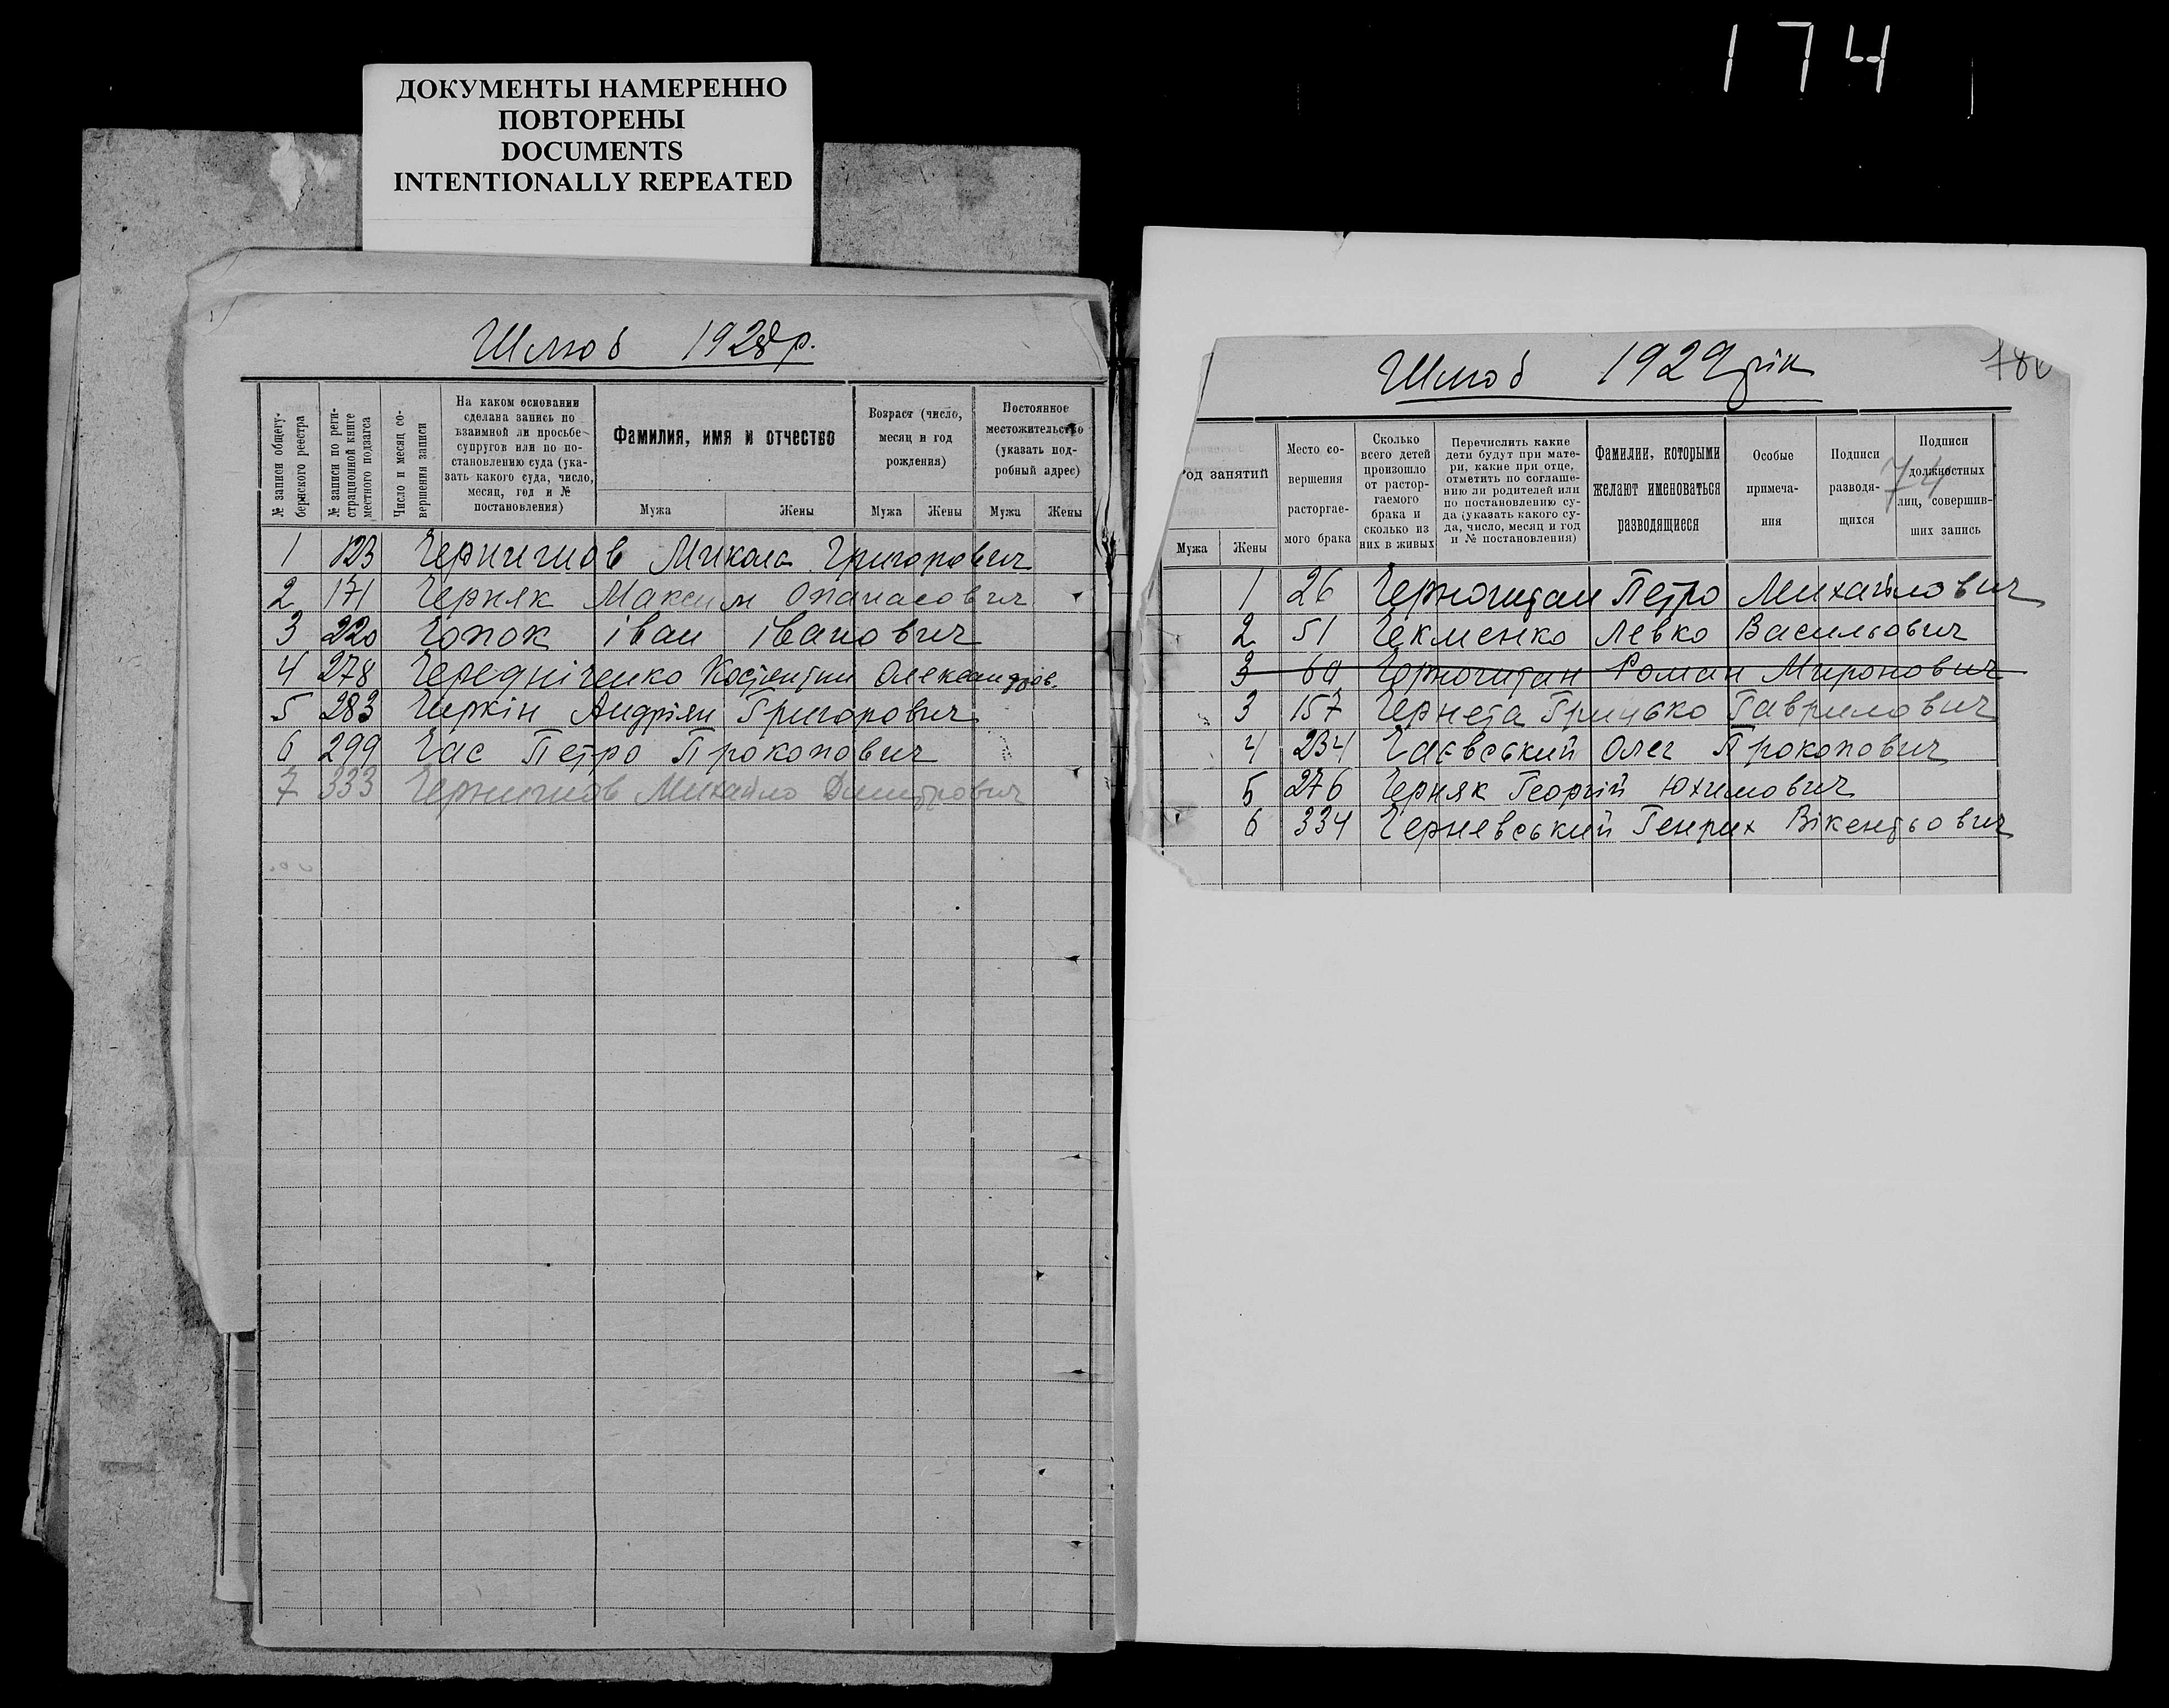 174
ДОКУМЕНТЫ НАМЕРЕННО
ПОВТОРЕНЫ
DOCUMENTS
INTENTIONALLY REPEATED
Шлюб 1928 р.
№ записи общегу-
бернского реестра
№ записи по реги-
страционной книге
местного подзагса
Число и месяц со-
вершения записи
На каком основании
сделана запись по
взаимной ли просьбе
супругов или по по-
становлению суда (ука-
зать какого суда, число,
месяц, год и №
постановления)
Фамилия, имя и отчество
Мужа Жены
Возраст (число,
месяц и год
рождения)
Мужа Жены
Постоянное
местожительство
(указать под-
робный адрес)
Мужа Жены
1 123 Чернишов Микола Григорович
2 171 Черняк Максим Опанасович
3 220 Чопок іван іванович
4 278 Чередніченко Костянтин Олександров.
5 283 Чиркін Андріян Григорович
6 299 Час Петро Прокопович
7 333 Чернишов Михайло Дмитрович
Шлюб 1929 рік
180
74
од занятий
Мужа Жены
Место со-
вершения
расторгае-
мого брака
Сколько
всего детей
произошло
от растор-
гаемого
брака и
сколько из
них в живых
Перечислить какие
дети будут при мате-
ри, какие при отце,
отметить по соглаше-
нию ли родителей или
по постановлению су-
да (указать какого су-
да, число, месяц и год
и № постановления)
Фамилии, которыми
желают именоваться
разводящиеся
Особые
примеча-
ния
Подписи
разводя-
щихся
Подписи
должностных
лиц, совершив-
ших запись
1 26 Черночитан Петро Михайлович
2 51 Чекменко Левко Васильович
3 60 Чорночитан Роман Миронович
3 157 Чернета Грицько Гаврилович
4 234 Чаєвський Олег Прокопович
5 276 Черняк Георгій Юхимович
6 334 Черневський Генрих Вікентьович